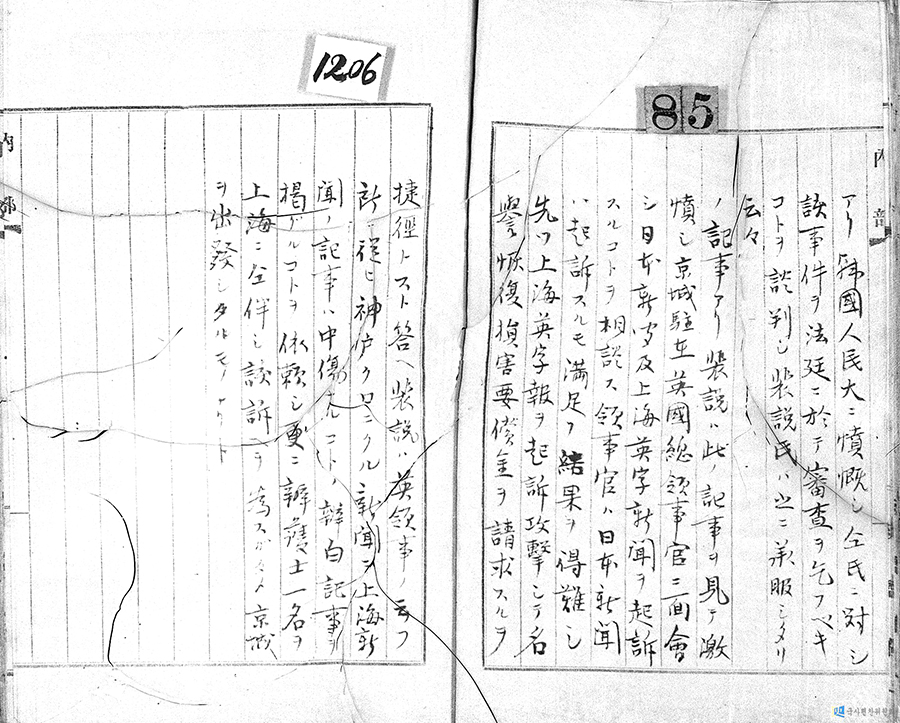 85
内部
アリ韓國人民大ニ憤慨シ仝氏ニ対シ
該事件ヲ法廷ニ於テ審査ヲ乞フベキ
コトヲ談判シ裴説氏ハ之ニ承服シタリ
云々
ノ記事アリ裴説ハ此ノ記事ヲ見テ激
憤シ京城駐在英國総領事官ニ面會
シ日本新聞及上海英字新聞ヲ起訴
スルコトヲ相談ス領事官ハ日本新聞
ハ起訴スルモ満足ノ結果ヲ得難シ
先ツ上海英字報ヲ起訴攻撃シテ名
譽恢復損害要償金ヲ請求スルヲ
1206
捷徑トスト答ヘ裴説ハ英領事ノ云フ
所ニ従ヒ神戸クロニクル新聞ニ上海新
聞ノ記事ハ中傷ナルコトノ辯白記事ヲ
揭グルコトヲ依頼シ更ニ辯護士一名ヲ
上海ニ仝伴シ該訴ヲ為スガタメ京城
ヲ出發シタルモノナリト
内部
국사편찬위원회